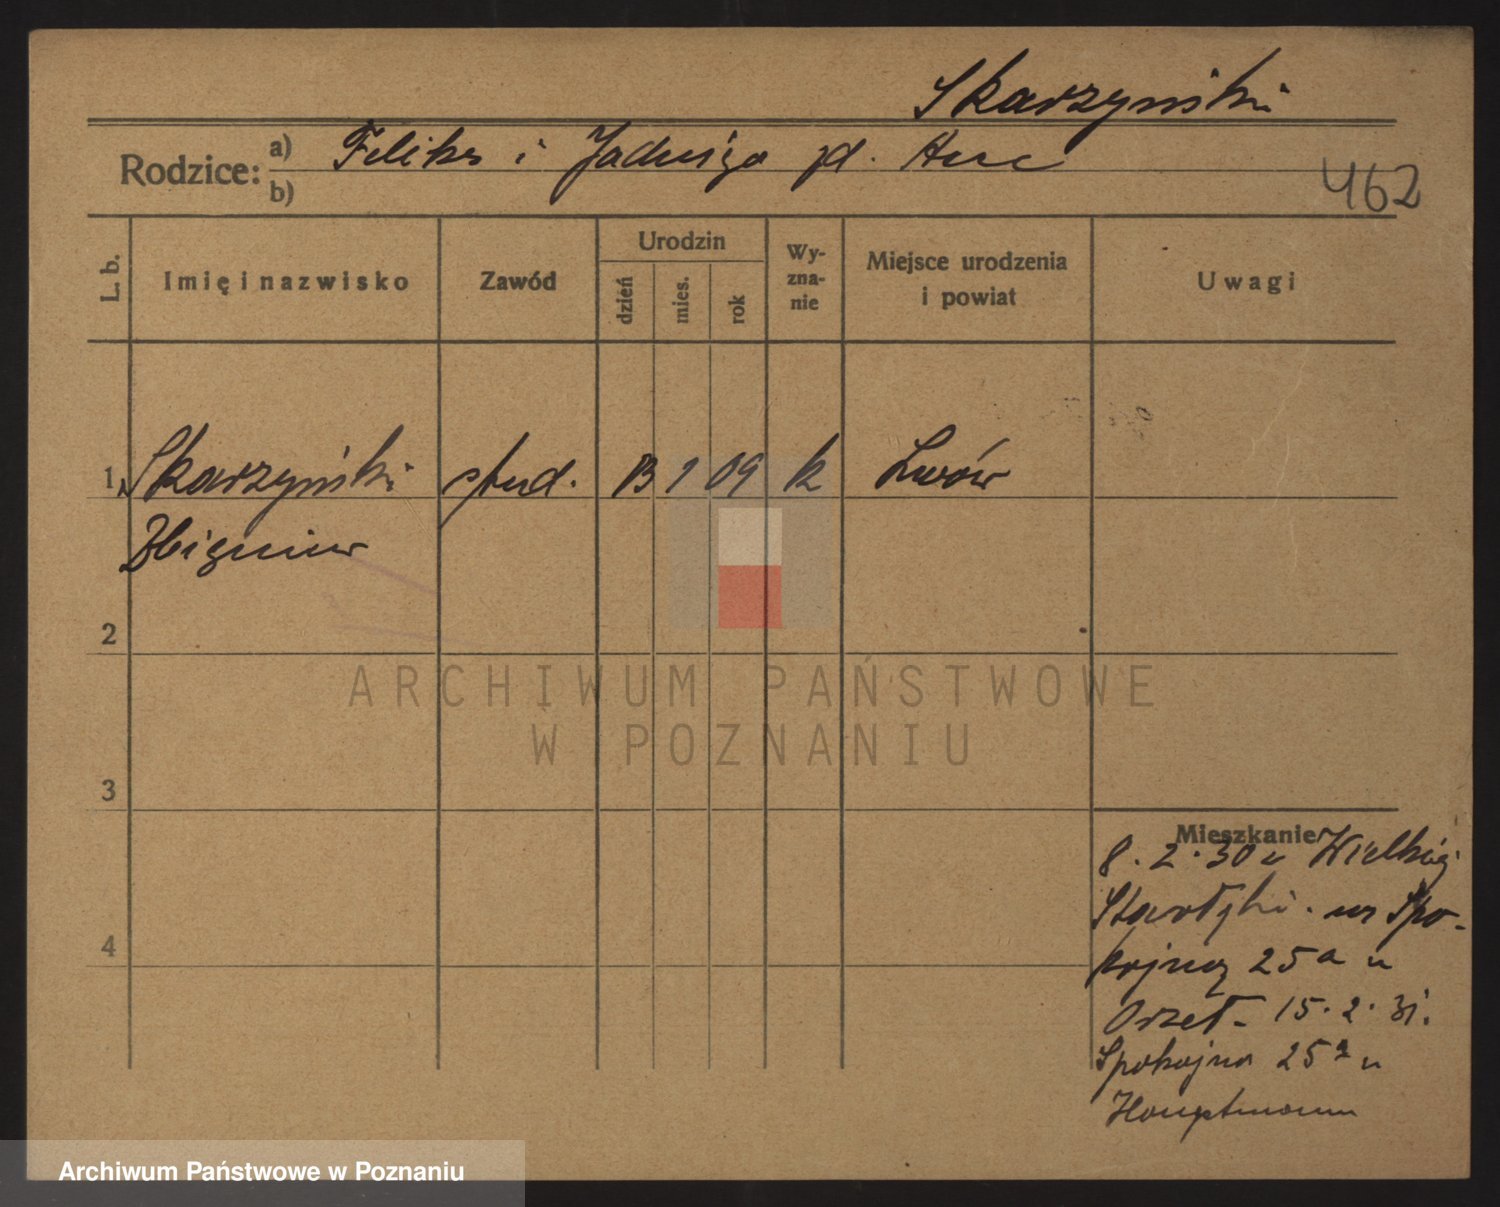 Skarzyński
Rodzice: a) Feliks i Jadwiga zd. Huc
b)
462
L. b. Imię i nazwisko Zawód Urodzin dzień mies. rok Wy-zna-nie Miejsce urodzenia i powiat Uwagi
1 Skarzyński stud. 13 1 09 k Lwów
Zbigniew
2
ARCHIWUM PAŃSTWOWE
W POZNANIU
3
Mieszkanie
8.2.30 z Wielkiej
na Spo-
kojną 25a u
15.2.31.
Spokojna 25a u
Hauptmann
4
Archiwum Państwowe w Poznaniu